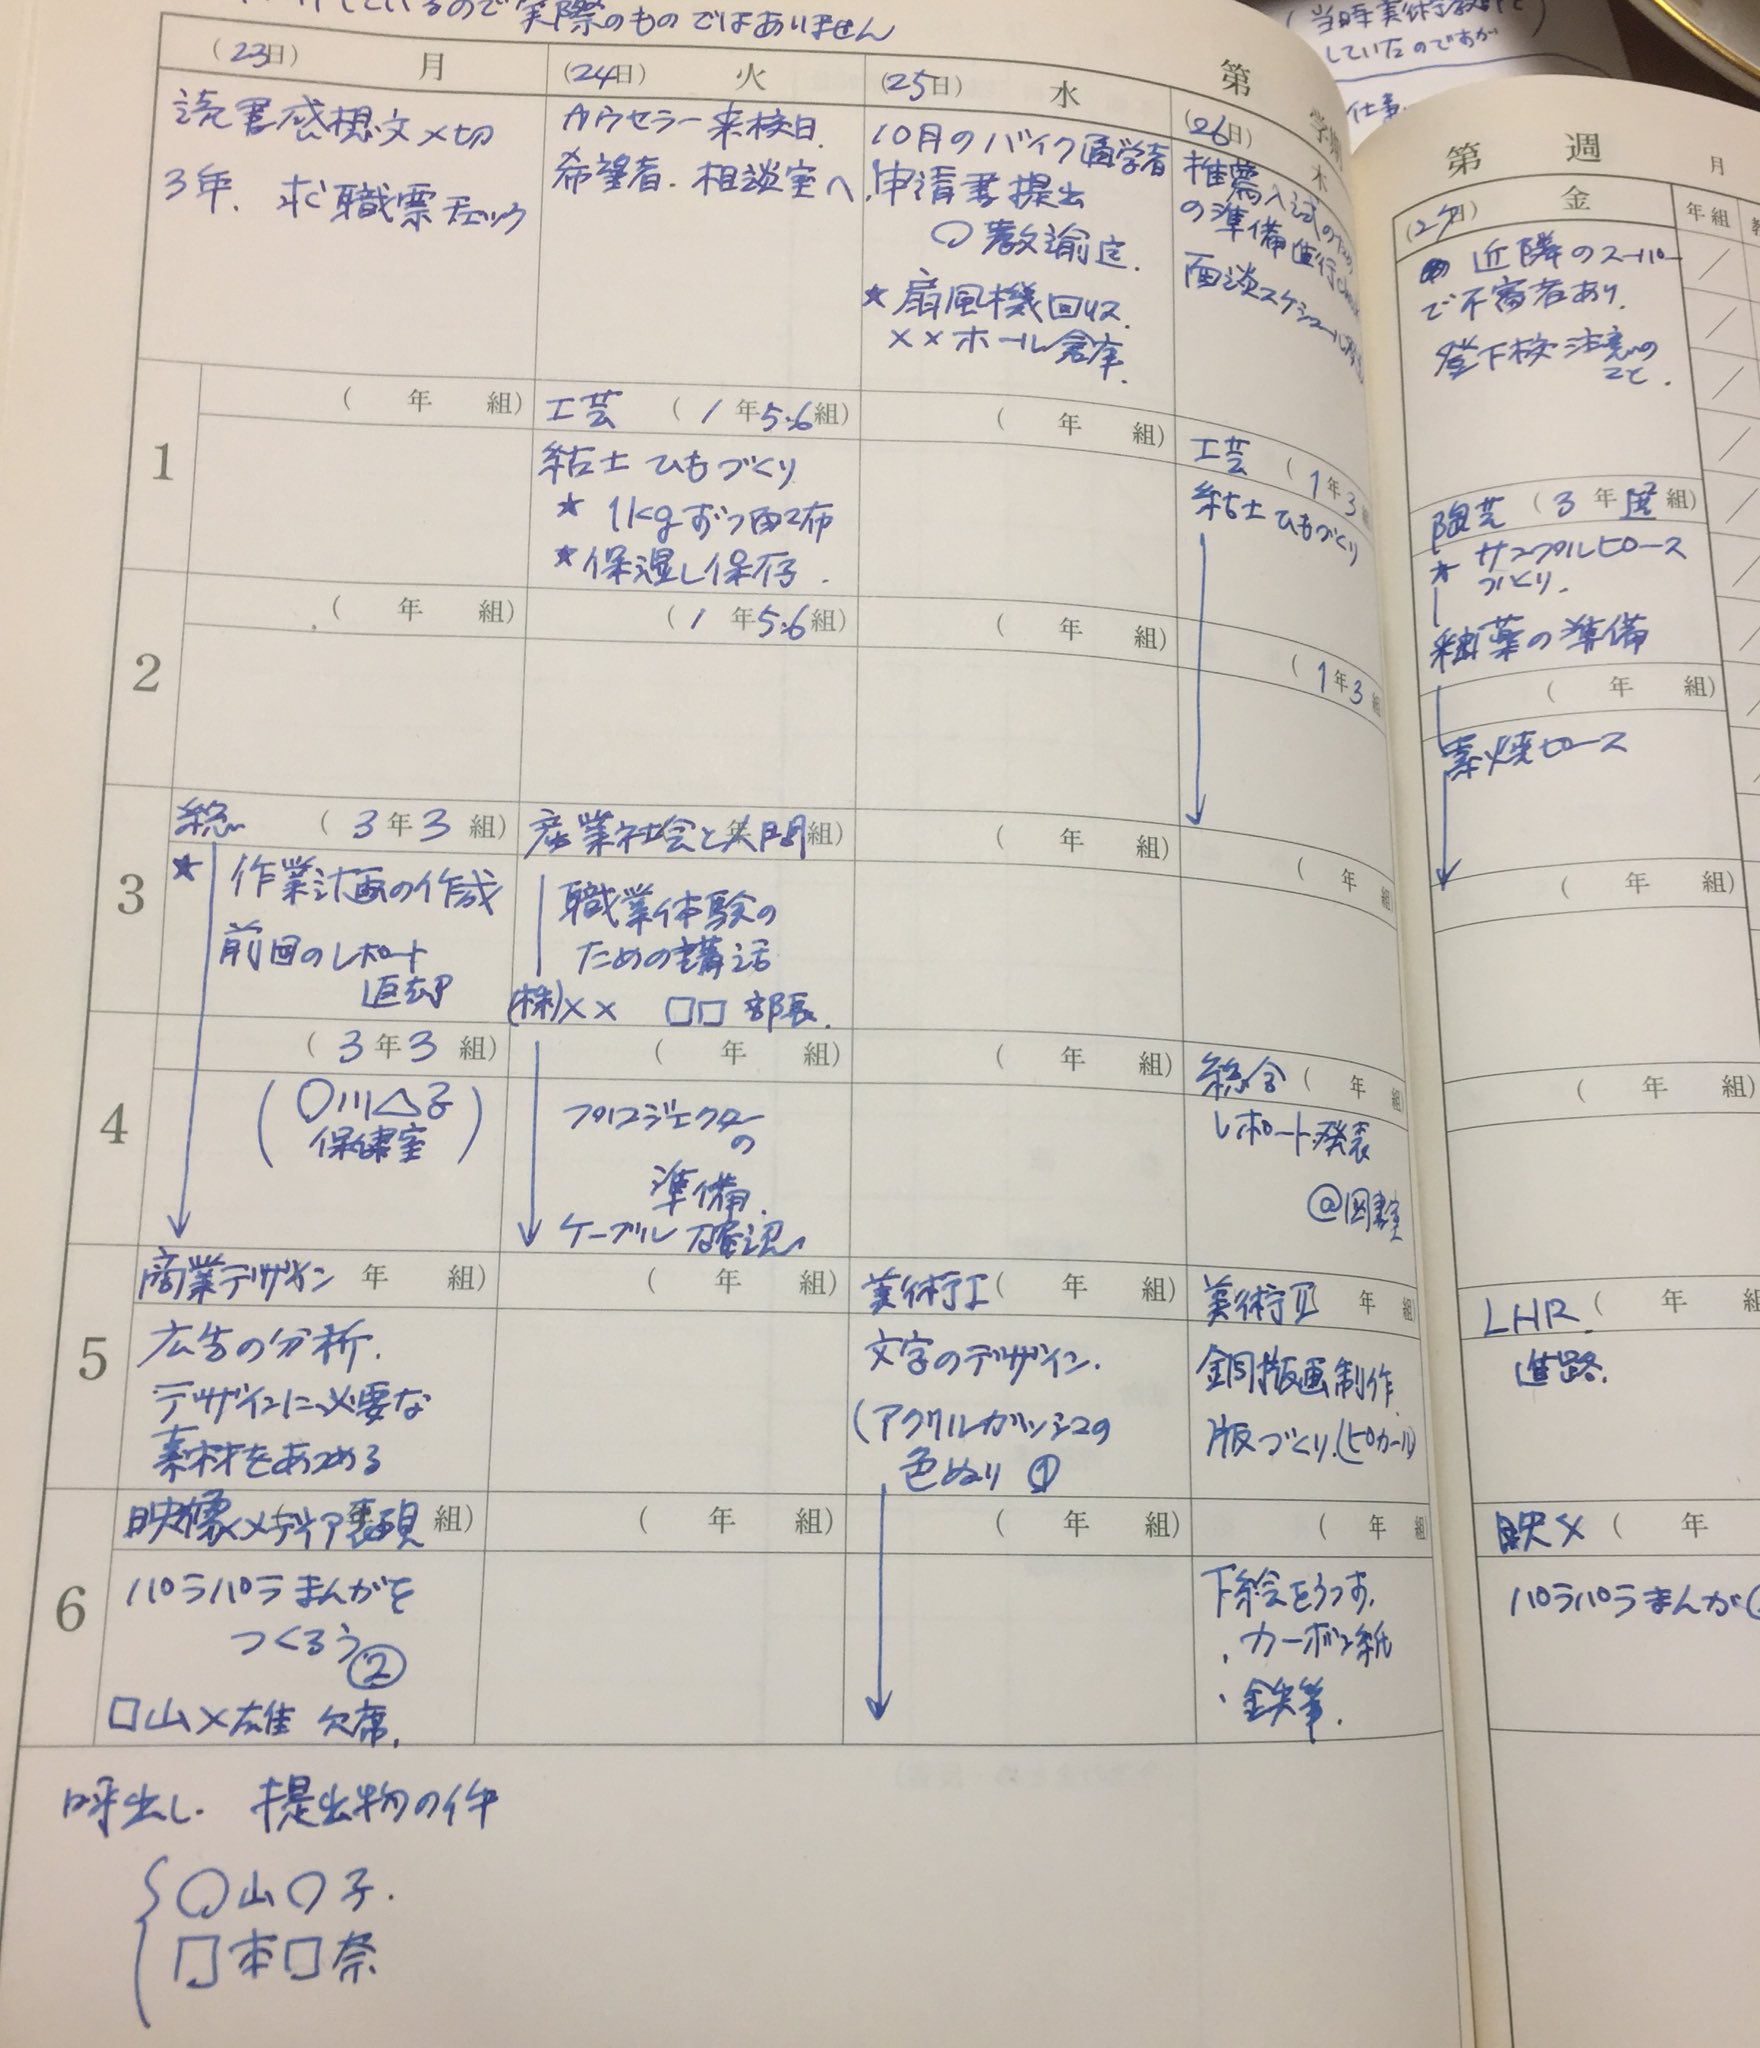 しているので実際のものではありません
(当時美術教師と
していたのですが
仕事
(23日) 月
(24日) 火
(25日) 水
第
学期
(26日) 木
読書感想文〆切
3年. 求職票チェック
カウセラー来校日.
希望者. 相談室へ.
10月のバイク通学者
申請書提出
○教諭迄.
★扇風機回収.
××ホール倉庫.
推薦入試のため
の準備進行check
面談スケジュール
1
( 年 組)
工芸 (1年5.6組)
粘土ひもづくり
★ 1kgずつ配布
★保湿し保存.
( 年 組)
工芸 (1年3組)
粘土ひもづくり
2
( 年 組)
(1年5.6組)
( 年 組)
(1年3組)
3
総 (3年3組)
★ 作業計画の作成
前回のレポート
返却
産業社会と人間 年 組)
職業体験の
ための講話
(株)×× □□ 部長.
( 年 組)
( 年 組)
4
(3年3組)
(○川△子
保健室)
( 年 組)
プロジェクターの
準備.
ケーブル確認
( 年 組)
総合 ( 年 組)
レポート発表
@図書室
5
商業デザイン 年 組)
広告の分析.
デザインに必要な
素材をあつめる
( 年 組)
美術I ( 年 組)
文字のデザイン.
(アクリルガッシュの
色ぬり ①
美術II 年 組)
銅版画制作.
版づくり.(ピカール)
6
映像メディア表現 年 組)
パラパラまんがを
つくろう②
□山×雄 欠席.
( 年 組)
( 年 組)
( 年 組)
下絵をうつす.
・カーボン紙
・鉄筆.
呼出し. 提出物の件
○山○子.
□本□奈
第 週
月
(27日) 金
年組
近隣のスーパー
で不審者あり.
登下校注意の
こと.
陶芸 (3年選組)
★ サンプルピース
づくり.
釉薬の準備
( 年 組)
素焼ピース
( 年 組)
( 年 組)
LHR ( 年 組
進路.
映メ ( 年
パラパラまんが